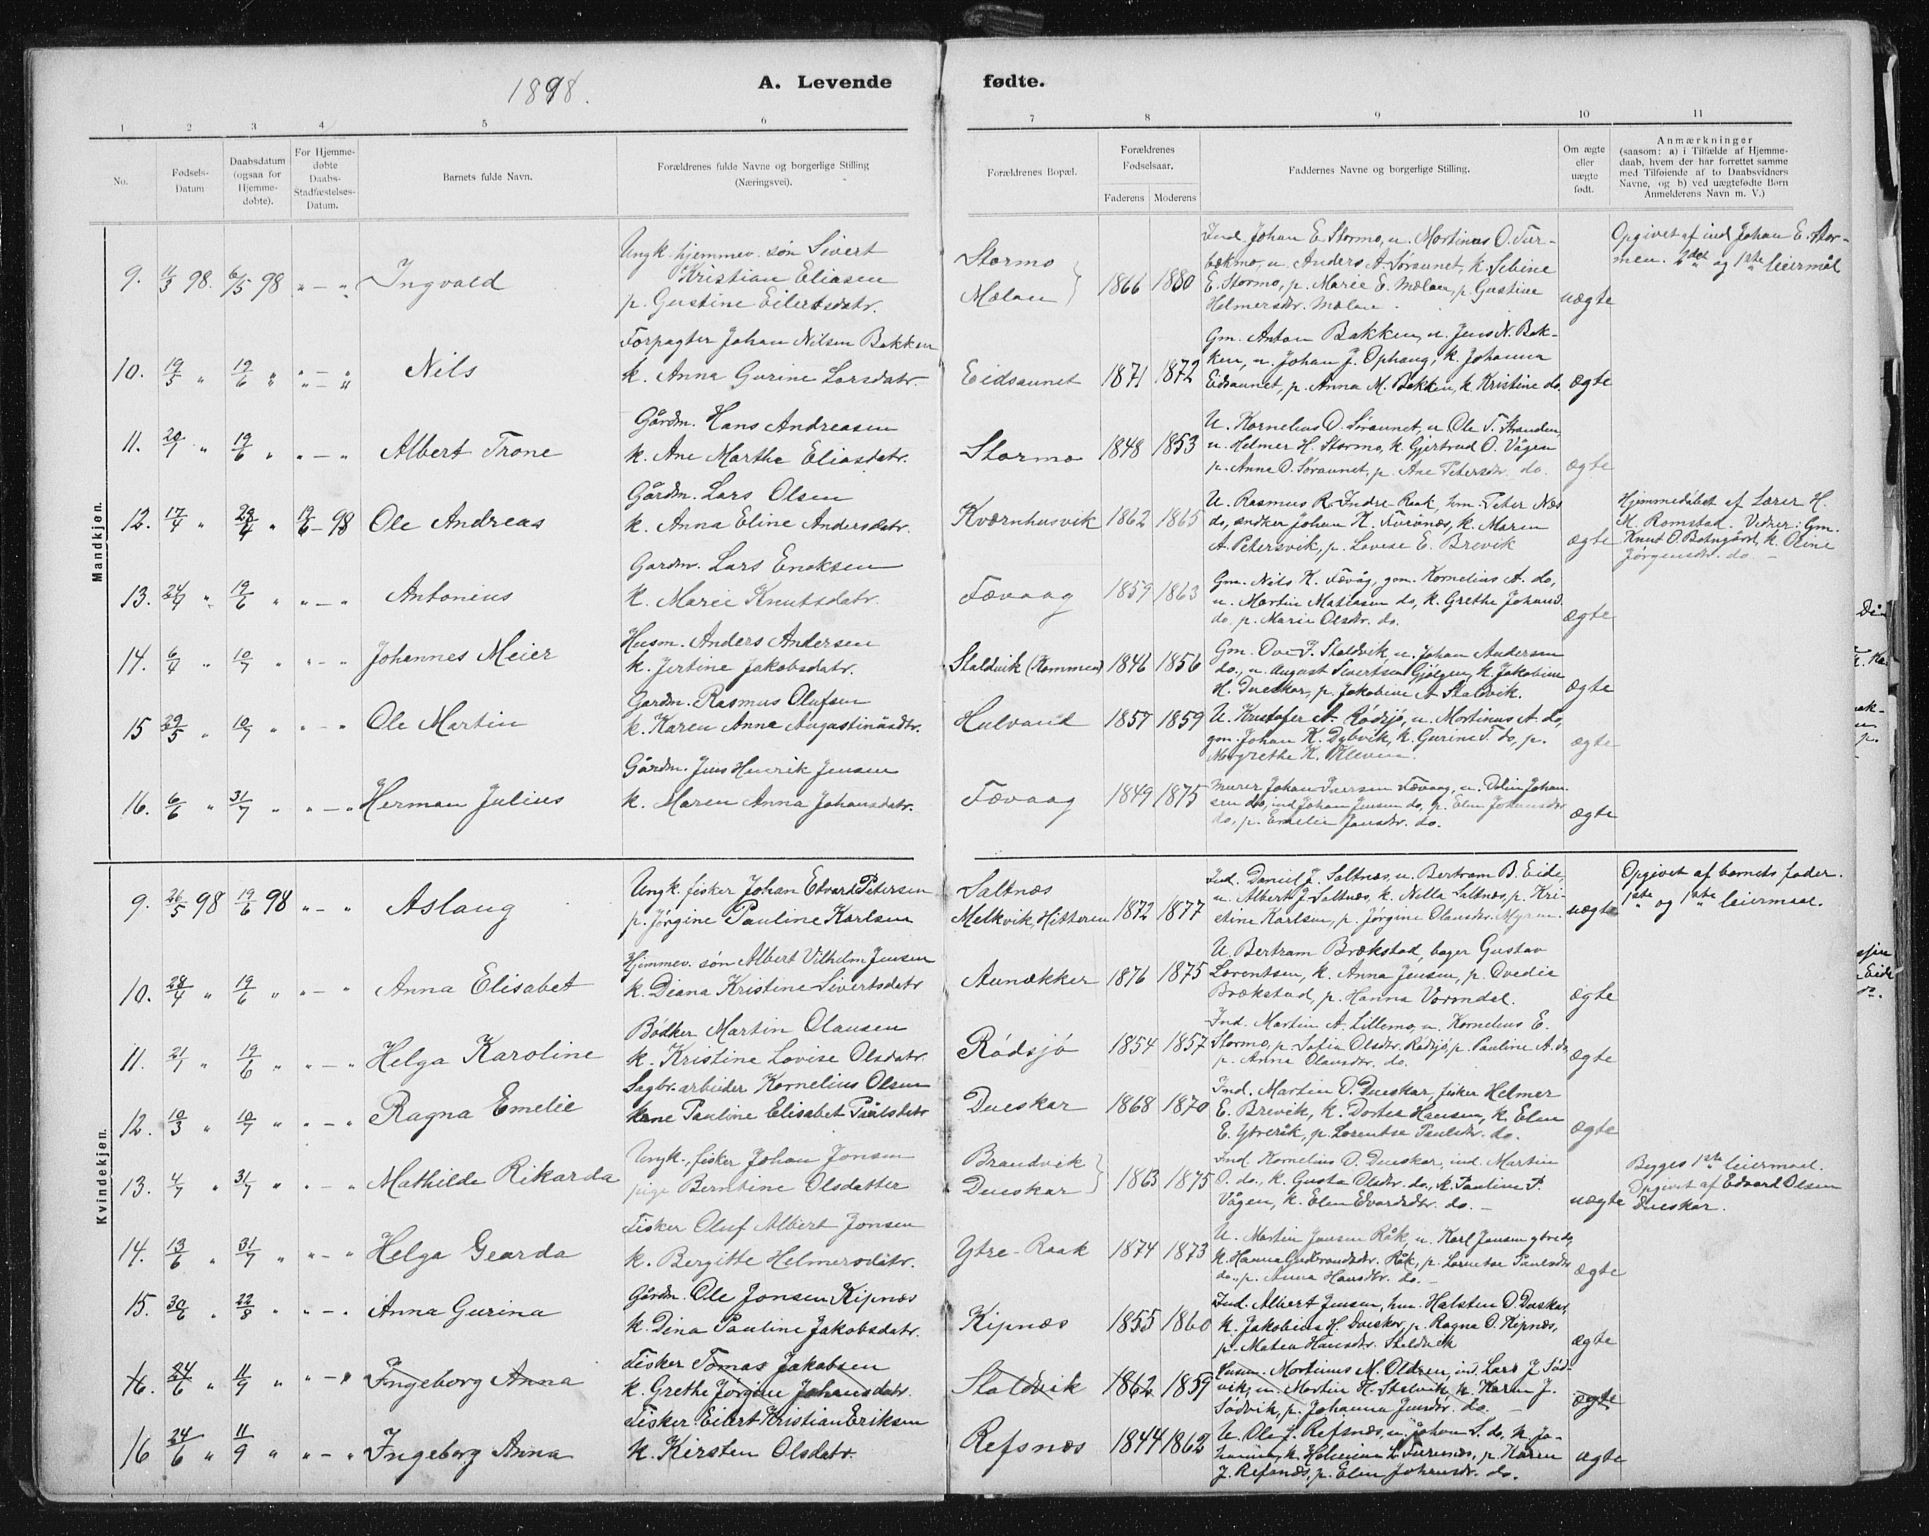 1898.
A. Levende fødte.
1 2 3 4 5 6 7 8 9 10 11
No.
Fødsels-
Datum
Daabsdatum
(ogsaa for
Hjemme-
døbte).
For Hjemme-
døbte
Daabs-
Stadfæstelses-
Datum.
Barnets fulde Navn.
Forældrenes fulde Navne og borgerlige Stilling
(Næringsvei).
Forældrenes Bopæl.
Forældrenes
Fødselsaar.
Faderens Moderens
Faddernes Navne og borgerlige Stilling.
Om ægte
eller
uægte
født.
Anmærkninger
(saasom: a) i Tilfælde af Hjemme-
daab, hvem der har forrettet samme
med Tilføiende af to Daabsvidners
Navne, og b) ved uægtefødte Børn
Anmelderens Navn m. V.)
Mandkjøn.
9. 11/3 98. 6/5 98 " — " Ingvald
Ungk. hjemmev. søn Sivert
Kristian Eliasen
p. Gustine Eilertsdatr.
Stormo
Mælan
1866 1880
Ind. Johan E. Stormo, u. Martinus O. Fur-
bækmo, u. Anders A. Søraunet, k. Sebine
E. Stormo, p. Marie E. Mælan, p. Gustine
Helmersdr. Mælan.
uægte
Opgivet af ind. Johan E. Stor-
men. 2det og 1ste leiermål
10. 19/5 " 19/6 " " — " Nils
Forpagter Johan Nilsen Bakken
k. Anna Gurine Larsdatr.
Eidsaunet 1871 1872
Gm. Anton Bakken, u. Jens N. Bak-
ken, u. Johan J. Ophaug, k. Johanna
Eidsaunet, p. Anna M. Bakken, k. Kristine do.
ægte
11. 20/7 " 19/6 " " — " Albert Trone
Gårdm. Hans Andreasen
k. Ane Marthe Eliasdatr.
Stormo 1848 1853
U. Kornelius O. Søraunet, u. Ole T. Stranden,
u. Helmer H. Stormo, k. Gjertrud O. Vågen
p. Anna O. Søraunet, p. Ane Petersdr. do.
ægte
12. 17/4 " 23/4 " 19/6 — 98 Ole Andreas
Gårdm. Lars Olsen
k. Anna Eline Andersdatr.
Kværnhusvik 1862 1865
U. Rasmus R. Indre-Raak, hm. Peter Næs
do, enker Johan K. Furunæs, k. Maren
A. Petersvik, p. Lovise E. Brevik
ægte
Hjemmedøbt af Lærer H.
M. Romstad. Vidner: Gm.
Knut O. Botngård, k. Oline
Jørgensdr. do. —
13. 24/4 " 19/6 " " — " Antonius
Gardm. Lars Enoksen
k. Marie Knutsdatr.
Fævaag 1859 1863
Gm. Nils K. Fævåg, gm. Kornelius A. do,
u. Martin Matiasen do, k. Grethe Johansd.
do, p. Marie Olsdtr. do.
ægte
14. 6/4 " 10/7 " " — " Johannes Meier
Husm. Anders Andersen
k. Jertine Jakobsdatr.
Staldvik (Hommen) 1846 1856
Gm. Ove J. Staldvik, u. Johan Andersen
do, u. August Sivertsen Gjølgen, k. Jakobine
H. Dueskar, p. Jakobine A. Stalvik.
ægte
15 29/5 " 10/7 " " — " Ole Martin
Gardm. Rasmus Olufsen
k. Karen Anne Augustinusdtr.
Hulvand 1857 1859
U. Kristofer A. Rødsjø, u. Martinus A. do,
gm. Johan K. Dybvik, k. Gurine T. do, p.
Magrethe K. Kleven.
ægte
16. 6/6 " 31/7 " " — " Herman Julius
Gårdm. Jens Henrik Jensen
k. Maren Anna Johansdatr.
Fævaag 1849 1875
Murer Johan Iversen Fævaag, u. Odin Johan-
sen do, ind. Johan Jensen do, p. Elen Johansdtr
do, p. Emelie Jensdr. do.
ægte
Kvindekjøn.
9. 26/5 98 19/6 98 " — " Aslaug
Ungk. fisker Johan Edvard Petersen
p. Jørgine Pauline Karlsen
Saltnæs
Melkvik, Hitteren 1872 1877
Ind. Daniel J. Saltnæs, u. Bertram B. Eide,
u. Albert J. Saltnæs, k. Nella Saltnæs, p. Kri-
stine Karlsen, p. Jørgine Olausdr. Myran.
uægte
Opgivet af barnets fader.
1ste og 1ste leiermaal.
10. 28/4 " 19/6 " " — " Anna Elisabet
Hjemmev. søn Albert Vilhelm Jensen
k. Diana Kristine Sivertsdatr
Aunækker 1876 1875
U. Bertram Brækstad, bager Gustav
Lorentsen, k. Anna Jensen, p. Ovedia
Brækstad, p. Hanna Vormdal.
ægte
11. 21/7 " 19/6 " " — " Helga Karoline
Bødker Martin Olausen
k. Kristine Lovise Olsdatr.
Rødsjø 1854 1857
Ind. Martin A. Lillemo, u. Kornelius E.
Stormo, p. Sofia Olsdtr. Rødsjø, p. Pauline A. do
p. Anna Olausdtr. do.
ægte
12. 10/3 " 10/7 " " — " Ragna Emelie
Sagbr.arbeider Kornelius Olsen
kone Pauline Elisabet Pålsdatr
Dueskar 1868 1870
Ind. Martin O. Dueskar, fisker Helmer
E. Brevik, k. Dortea Hansen, k. Elen
E. Ytreråk, p. Lorentse Paulsdr. do.
ægte
13. 4/7 " 31/7 " " — " Mathilde Rikarda
Ungk., fisker Johan Jonsen
pige Berntine Olsdatter
Brandvik
Dueskar
1863 1875
Ind. Kornelius O. Dueskar, ind. Martin
O. do, k. Gusta Olsdr. do, k. Pauline P.
Vågen, k. Elen Edvardsdtr. do. —
uægte
Begges 1ste leiermaal.
Opgivet af Edvard Olsen
Dueskar.
14. 13/6 " 31/7 " " — " Helga Gearda
Fisker Oluf Albert Jonsen
k. Bergitte Helmersdatr.
Ytre-Raak 1874 1873
U. Martin Jensen Råk, u. Karl Jensen ytre do,
k. Hanna Gudbrandsdtr. Råk, p. Lorentse Paulsdtr
do., p. Anna Hansdtr. do. —
ægte
15. 30/6 " 22/8 " " — " Anna Gurina
Gårdm. Ole Jonsen Kipnæs
k. Dina Pauline Jakobsdatr.
Kipnæs 1855 1860
Ind. Albert Jensen, hm. Halsten O. Dueskar,
k. Jakobine H. Dueskar, p. Ragna O. Kipnæs,
p. Matea Hansdtr. Staldvik
ægte
16. 24/6 " 11/9 " " — " Ingeborg Anna
Fisker Tomas Jakobsen
k. Grethe Jørgine Johansdatr.
Staldvik 1862 1859
Husm. Martinus M. Oldren, ind. Lars J. Sød-
vik, u. Martin H. Stalvik, k. Karen J.
Sødvik, p. Johanna Jensdr. do. —
ægte
16 24/6 " 11/9 " " — " Ingeborg Anna
Fisker Eilert Kristian Eriksen
k. Kirsten Olsdatr.
Refsnæs 1844 1862
U. Ole J. Refsnæs, u. Johan S. do, k. Jo-
hanna, k. Helmine L. Furunæs, p. Karen
J. Refsnæs, p. Elen Johansdr. do.
ægte